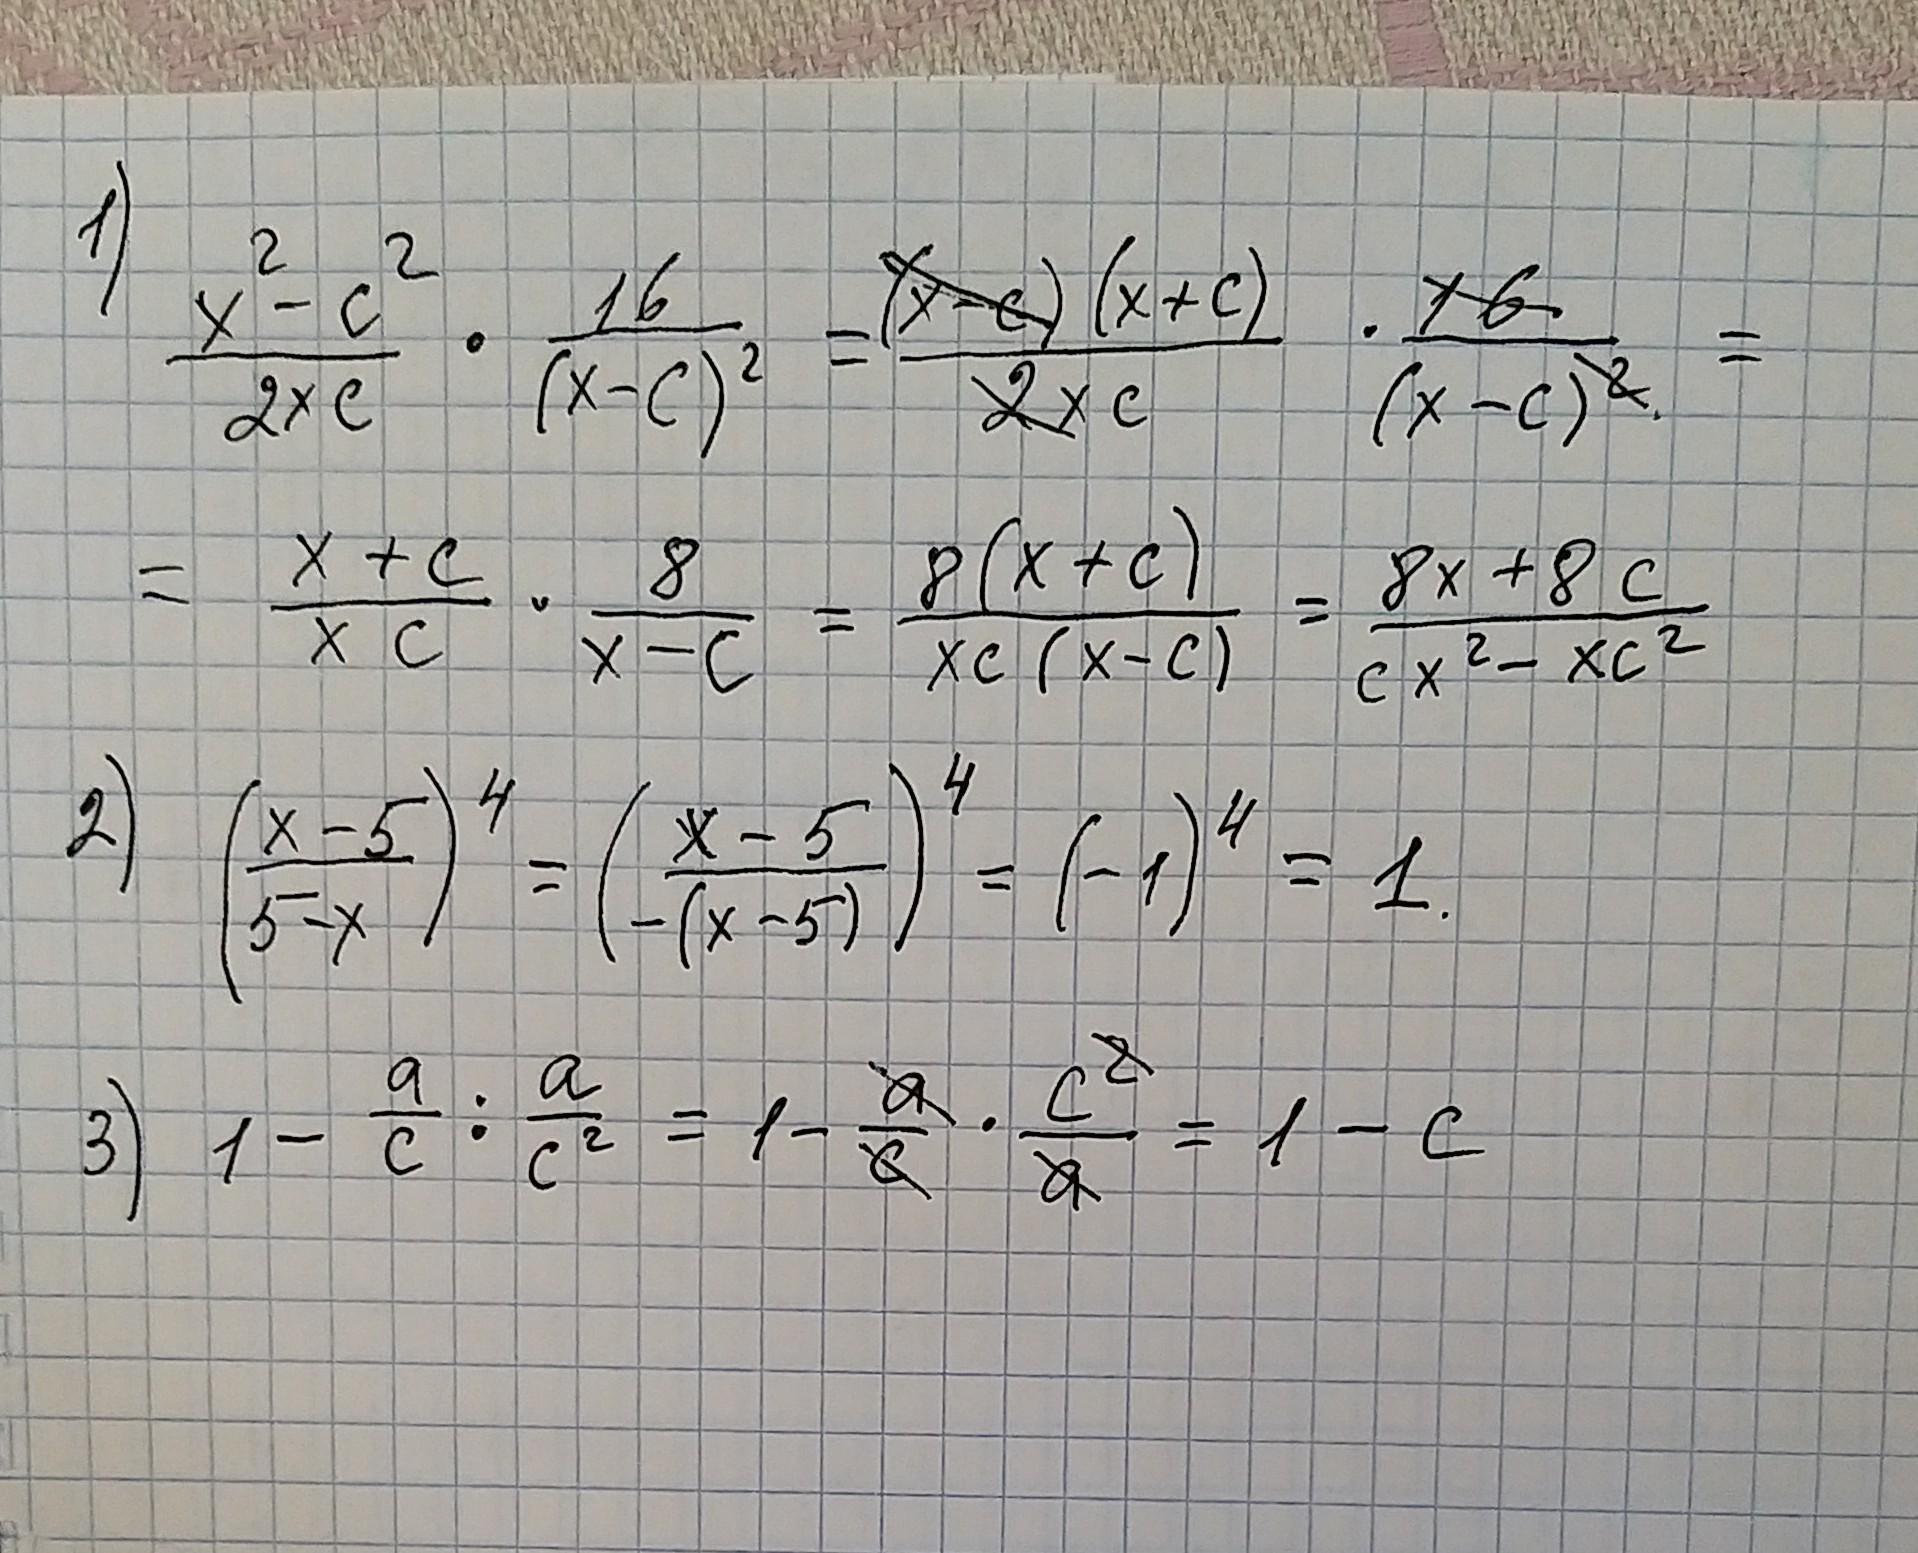 1) \frac{x^2-c^2}{2xc} \cdot \frac{16}{(x-c)^2} = \frac{(x-c)(x+c)}{2xc} \cdot \frac{16}{(x-c)^2} =
= \frac{x+c}{xc} \cdot \frac{8}{x-c} = \frac{8(x+c)}{xc(x-c)} = \frac{8x+8c}{cx^2-xc^2}
2) \left(\frac{x-5}{5-x}\right)^4 = \left(\frac{x-5}{-(x-5)}\right)^4 = (-1)^4 = 1.
3) 1 - \frac{a}{c} : \frac{a}{c^2} = 1 - \frac{a}{c} \cdot \frac{c^2}{a} = 1 - c